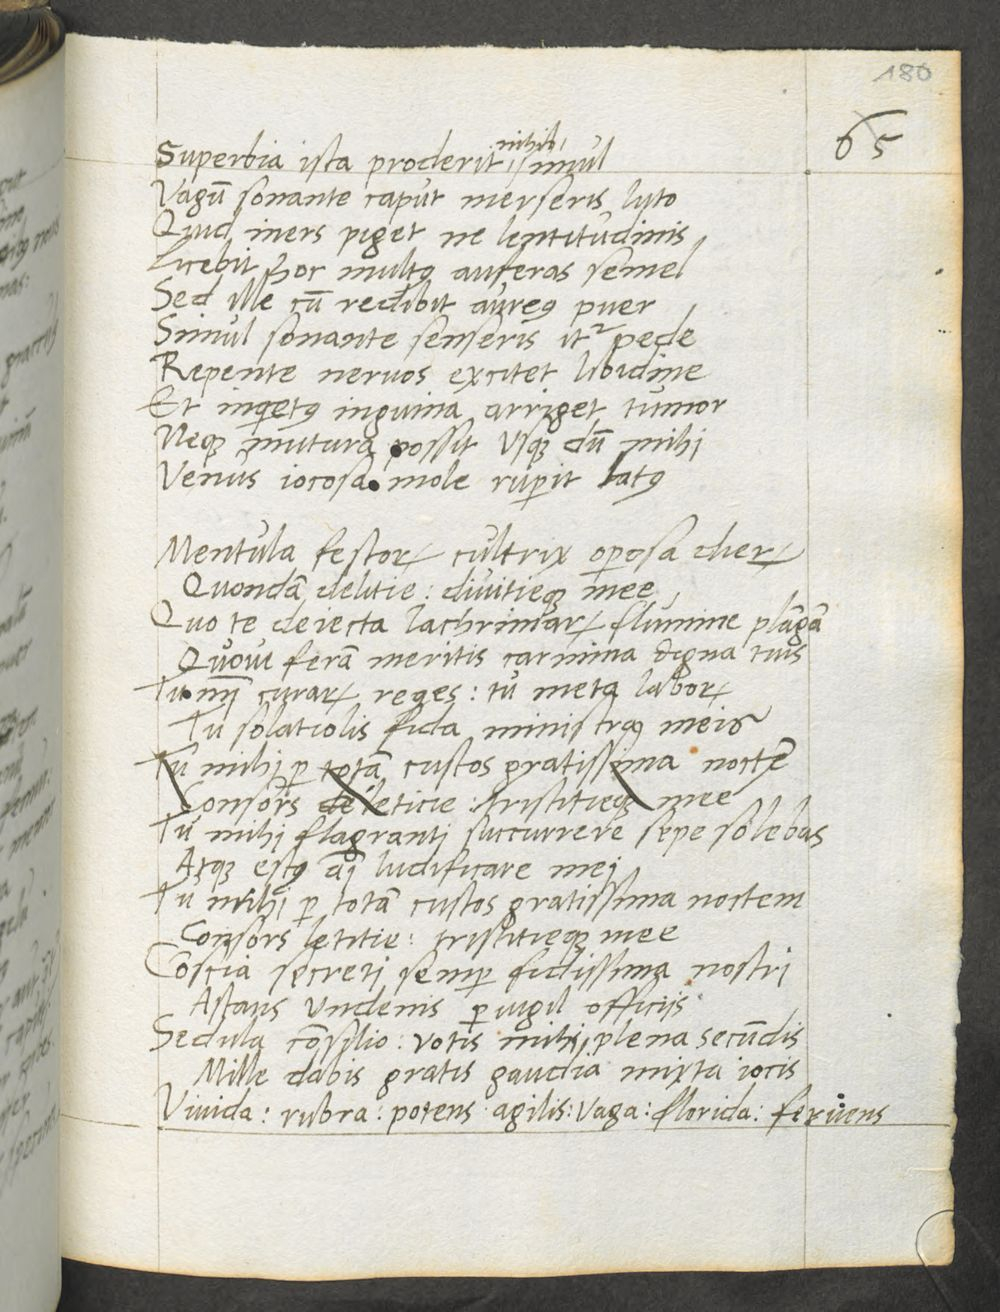 180
65
Superbia ista proderit nihil, simul
Vagū sonante caput merseris luto
Quid iners piget ne lentitudinis
Licebit hoc multꝰ auferas semel
Sed ille cū redibit aureꝰ puer
Simul sonante senseris itr pede
Repente neruos excitet libidine
Et inqetꝰ inguina arriget tumor
Neqꝫ mutura possit Vsqꝫ dū mihi
Venus iocosa mole rupit latꝰ
Mentula festoꝝ cultrix oposa dieꝝ
Quondā delitie : diuitieqꝫ mee
Quo te deiecta lachrimaꝝ flumine plāgā
Quoui ferā meritis carmina digna tuis
Tu curaꝝ reges : tu meta laboꝝ
Tu solatiolis fida ministra meis
Tu mihi ꝑ totā custos gratissima noctē
Consors leticie : tristitieqꝫ mee
Tu mihi flagranti succurrere sepe solebas
Atqꝫ estꝰ āi ludificare mei
Tu mihi ꝑ totā custos gratissima noctem
Consors letitie : tristitieqꝫ mee
Cōscia secreti semꝑ fidissima nostri
Astans Vndenis ꝑuigil officijs
Sedula cōsilio : votis mihi plena secūdis
Mille dabis gratis gaudia mixta iocis
Viuida : rubra : potens agilis : vaga : florida : feruens